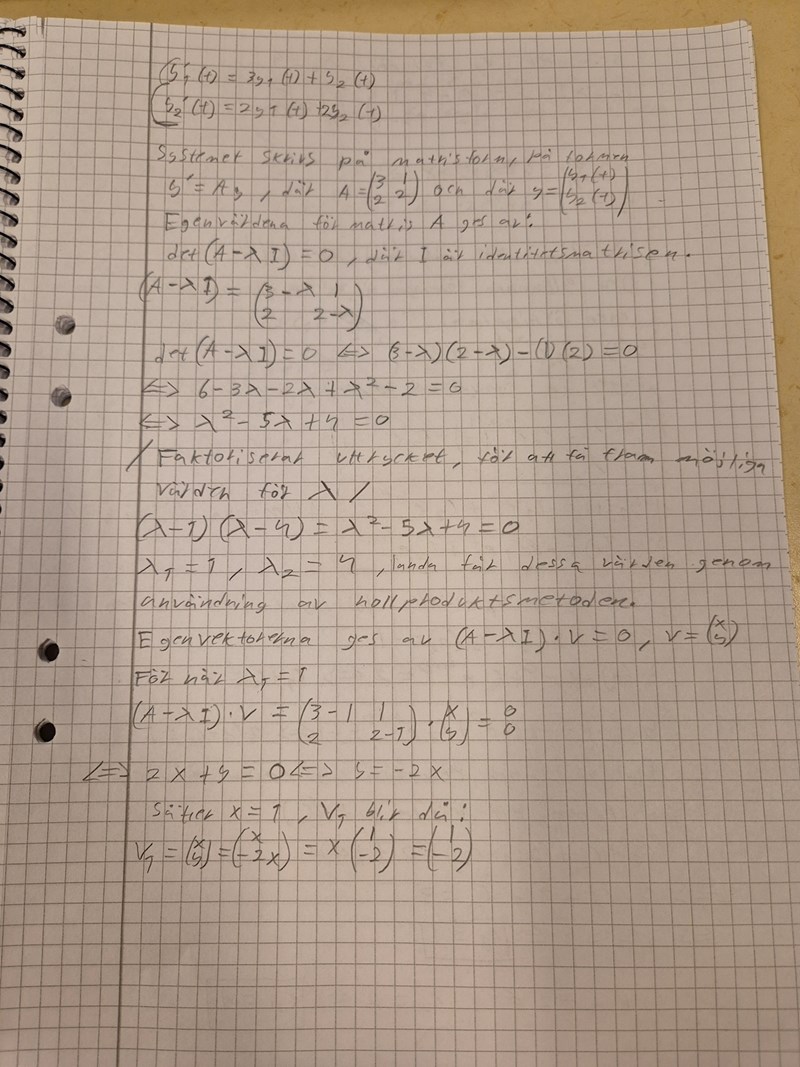 y₁'(t) = 3y₁(t) + y₂(t)
y₂'(t) = 2y₁(t) + 2y₂(t)
Systemet skrivs på matrisform, på formen
y' = Ay, där A = (3 1; 2 2) och där y = (y₁(t); y₂(t))
Egenvärdena för matris A ges av:
det(A-λI) = 0, där I är identitetsmatrisen.
(A-λI) = (3-λ 1; 2 2-λ)
det(A-λI) = 0 <=> (3-λ)(2-λ)-(1)(2) = 0
<=> 6-3λ-2λ+λ²-2 = 0
<=> λ²-5λ+4 = 0
/ Faktoriserar uttrycket, för att få fram möjliga
värden för λ /
(λ-1)(λ-4) = λ²-5λ+4 = 0
λ₁ = 1, λ₂ = 4, får dessa värden genom
användning av nollproduktsmetoden.
Egenvektorerna ges av (A-λI)·v = 0, v = (x; y)
För när λ₁ = 1
(A-λI)·v = (3-1 1; 2 2-1)·(x; y) = 0; 0
<=> 2x+y = 0 <=> y = -2x
Sätter x = 1, v₁ blir då:
v₁ = (x; y) = (x; -2x) = x(1; -2) = (1; -2)